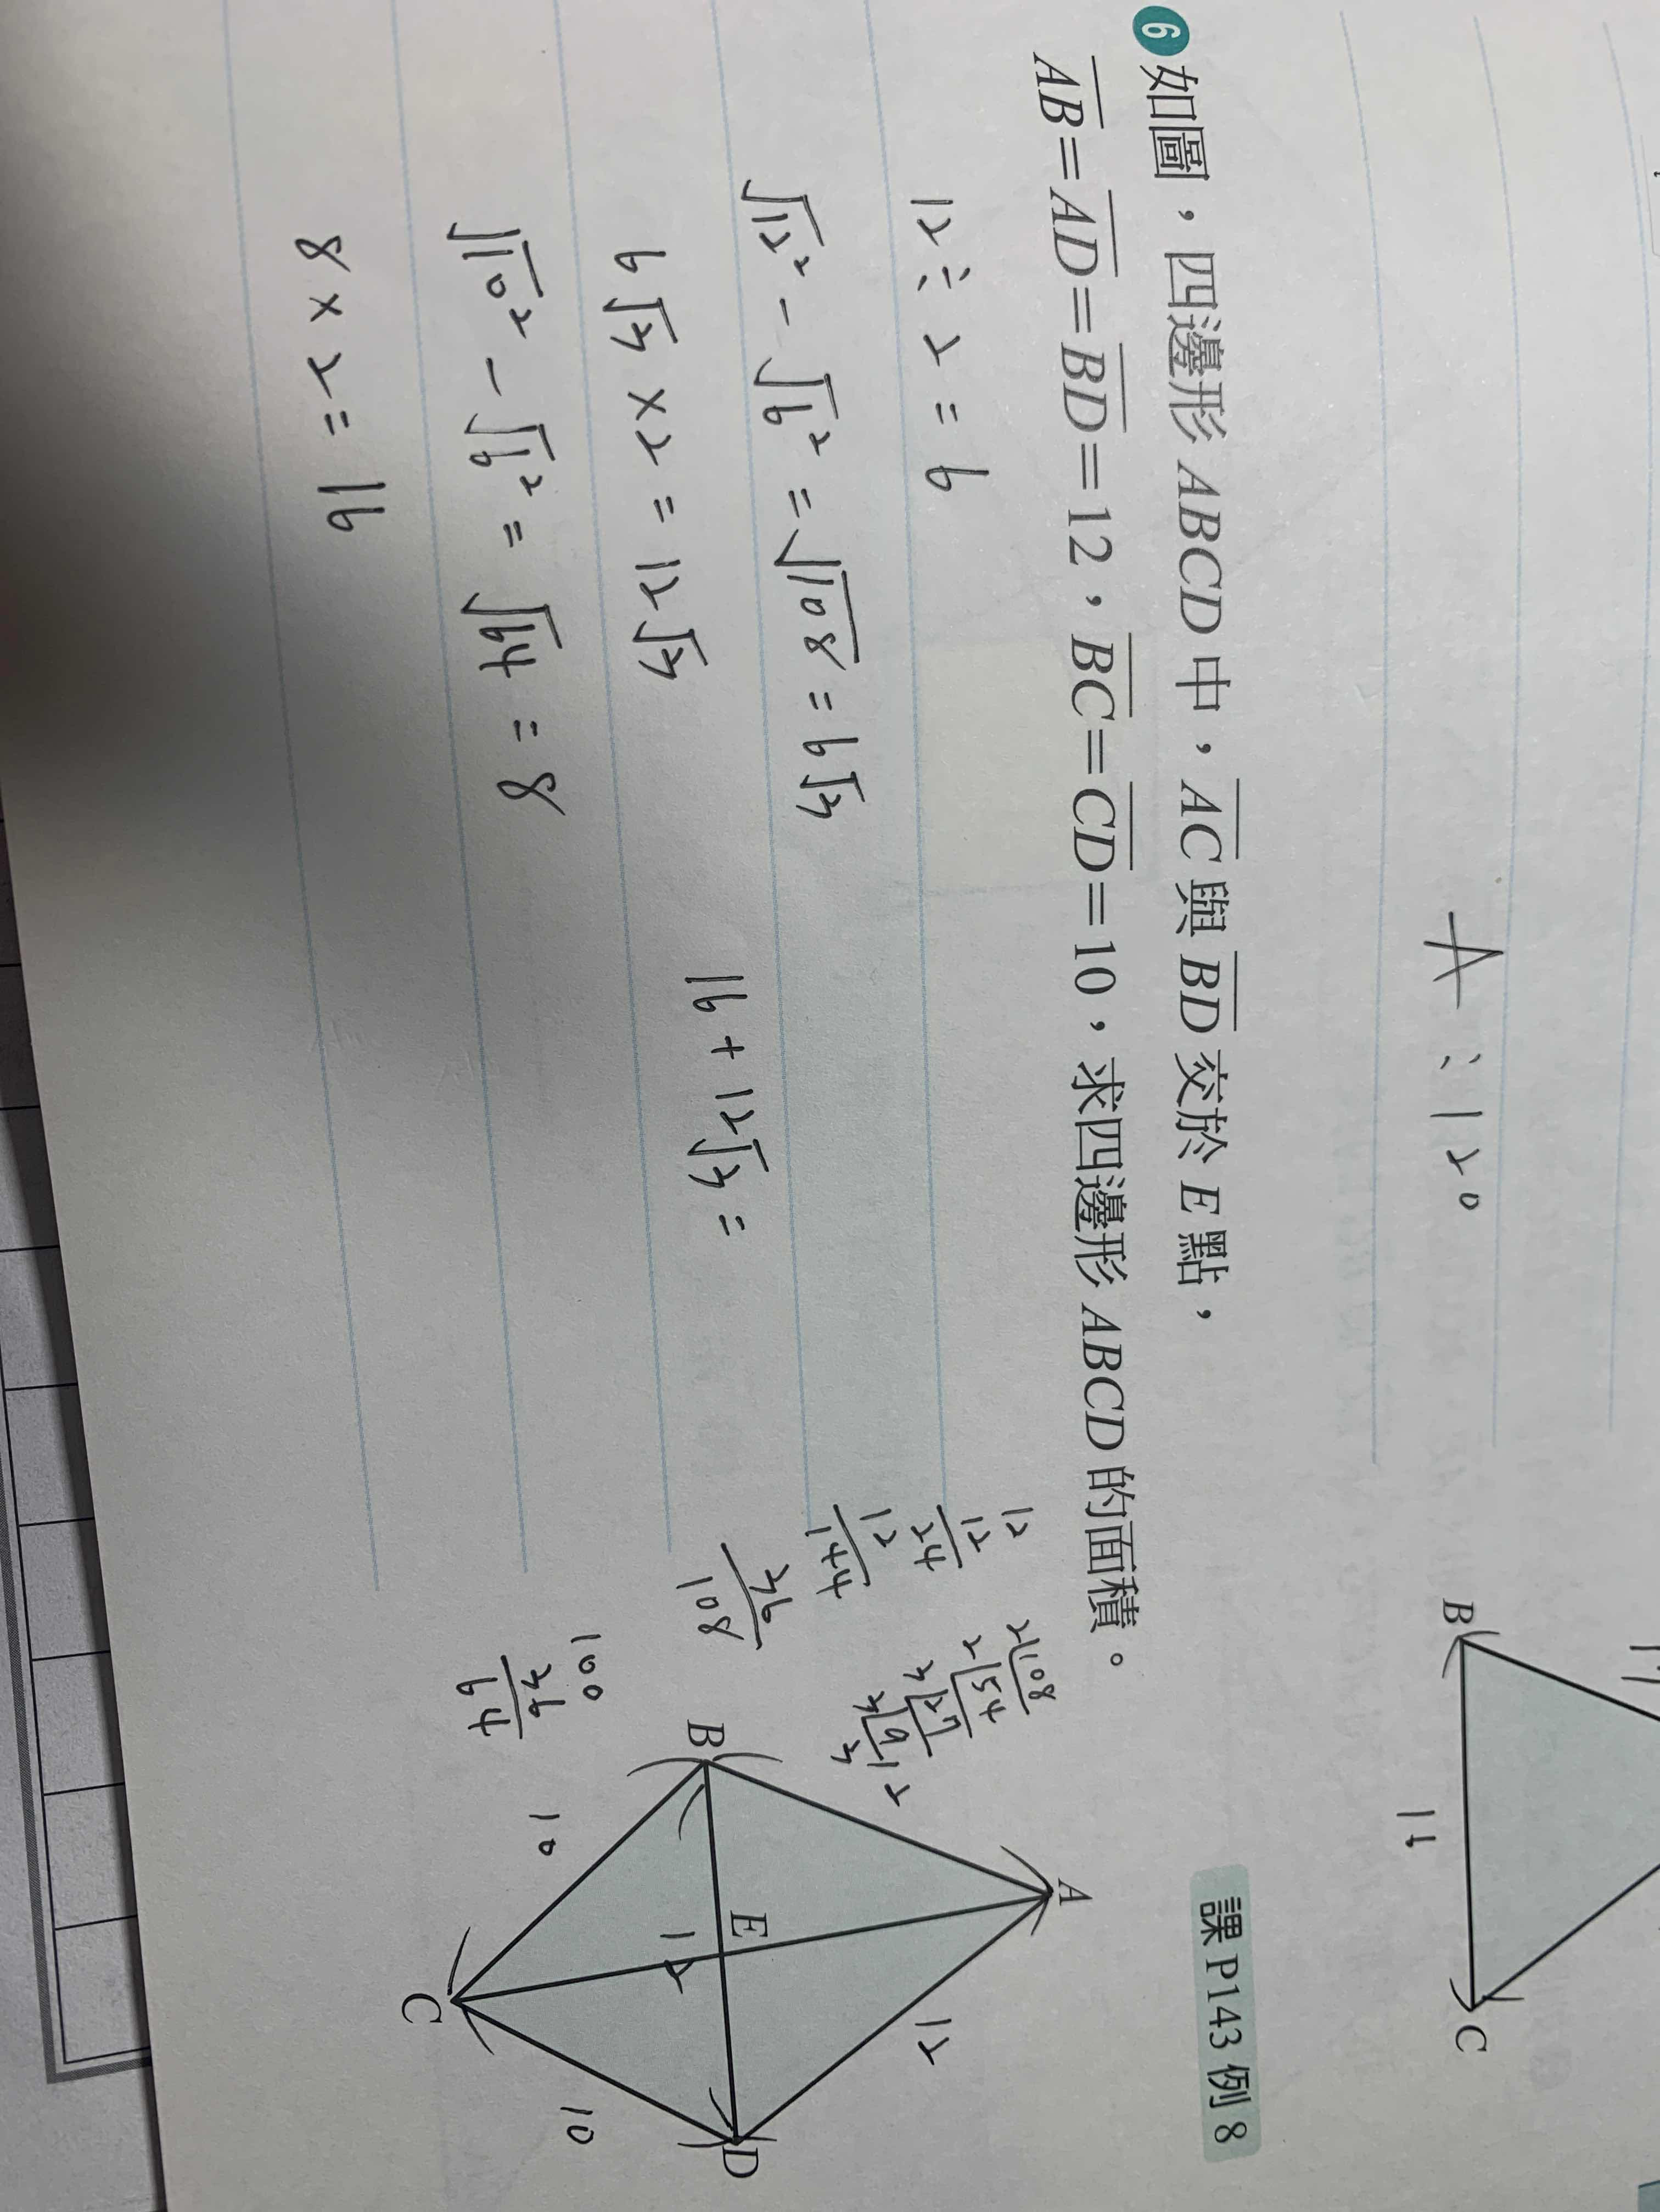 A：12°
B
C
11
6 如圖，四邊形 ABCD 中，AC 與 BD 交於 E 點，
AB=AD=BD=12，BC=CD=10，求四邊形 ABCD 的面積。
課 P143 例 8
12÷2=6
√12²-√6²=√108=6√3
6√3×2=12√3
16+12√3=
√10²-√6²=√64=8
8×2=16
12
12
24
12
144
36
108
2|108
2|54
3|27
3|9
3
100
36
64
A
B
E
D
C
12
12
10
10